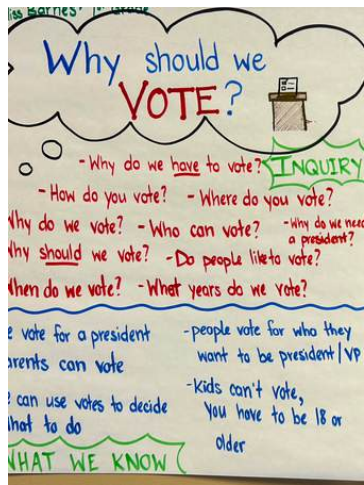 iss Barnes' 1st Grade
Why should we
VOTE?
-Why do we have to vote?
INQUIRY
-How do you vote? -Where do you vote?
Why do we vote? -Who can vote? -Why do we need
a president?
Why should we vote? -Do people like to vote?
When do we vote? -What years do we vote?
e vote for a president
arents can vote
can use votes to decide
hat to do
-people vote for who they
want to be president/VP
-Kids can't vote,
you have to be 18 or
older
WHAT WE KNOW